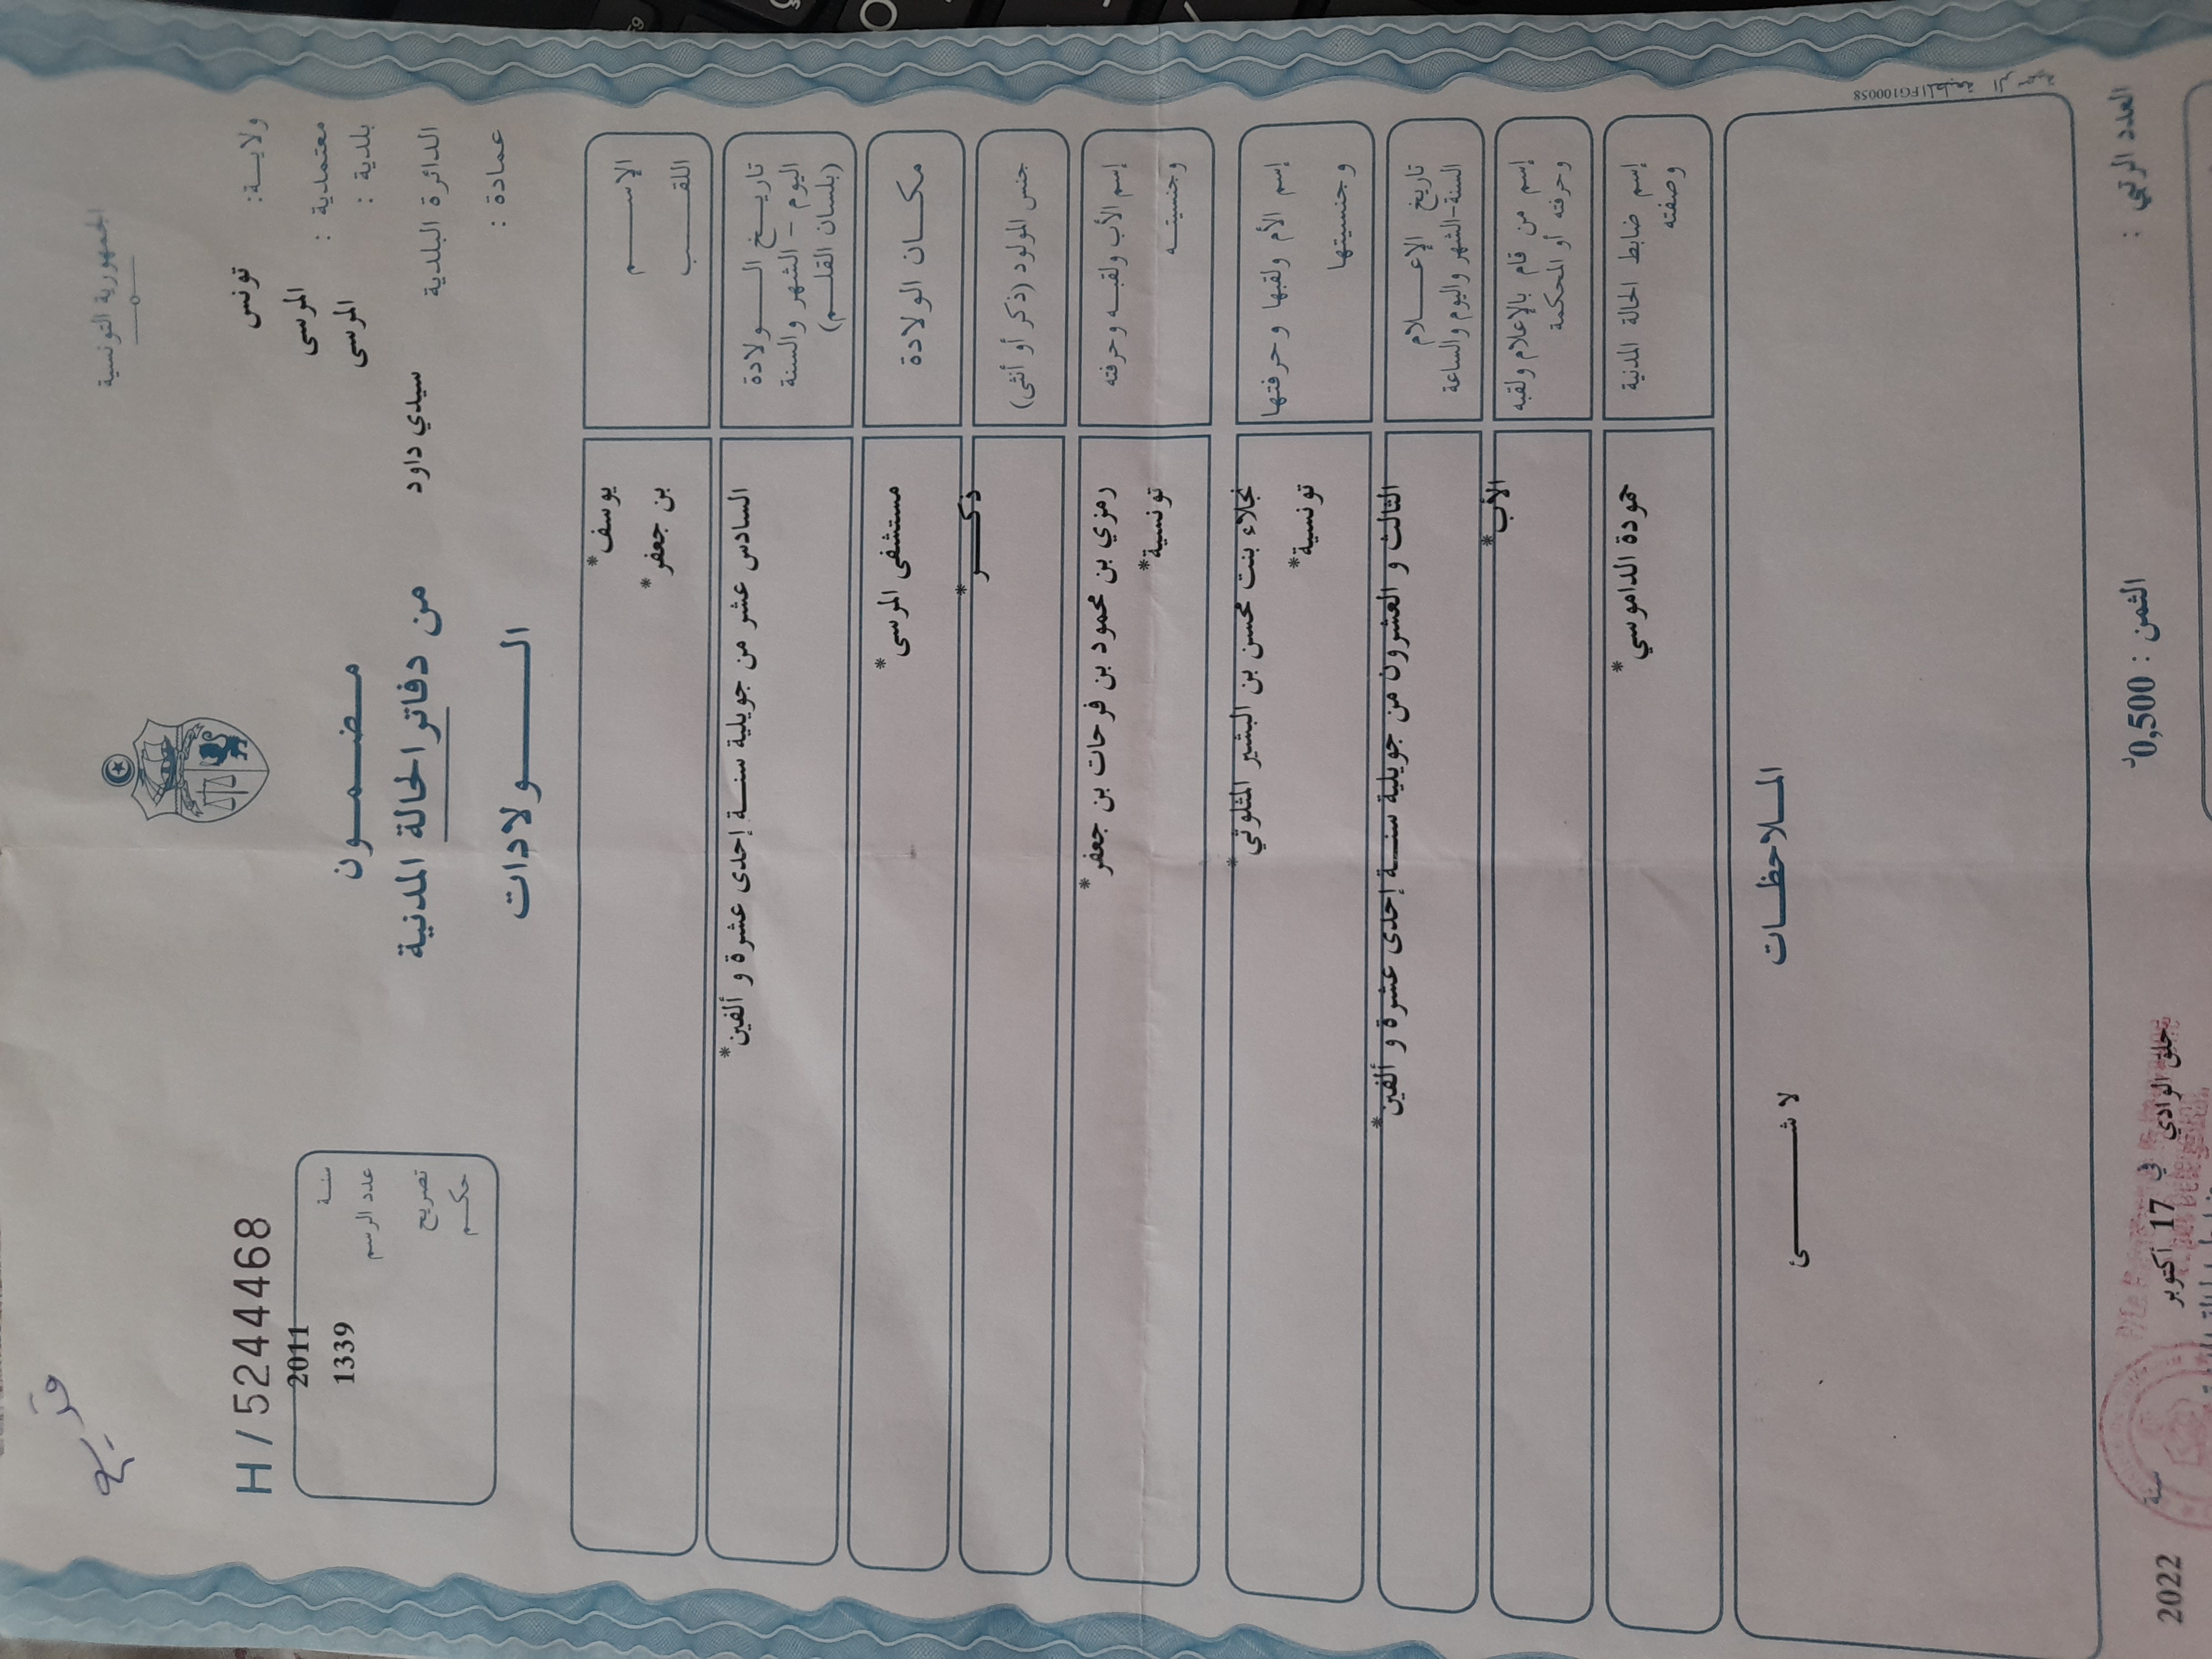 الجمهورية التونسية
ولاية: تونس
معتمدية: المرسى
بلدية: المرسى
الدائرة البلدية سيدي داود
عمادة:
مضمون
من دفاتر الحالة المدنية
الولادات
H / 5244468
سنة 2011
عدد الرسم 1339
تصريح
حكم
الإسم يوسف*
اللقب بن جعفر*
تاريخ الولادة
اليوم - الشهر والسنة
(بلسان القلم)
السادس عشر من جويلية سنة إحدى عشرة و ألفين*
مكان الولادة
مستشفى المرسى*
جنس المولود (ذكر أو أنثى)
ذكر*
إسم الأب ولقبه وحرفته
رمزي بن محمود بن فرحات بن جعفر*
وجنسيته
تونسية*
إسم الأم ولقبها وحرفتها
نجلاء بنت محسن بن البشير المثلوثي*
وجنسيتها
تونسية*
تاريخ الإعلام
السنة-الشهر واليوم والساعة
الثالث و العشرون من جويلية سنة إحدى عشرة و ألفين*
إسم من قام بالإعلام ولقبه
وحرفته أو المحكمة
الأب*
إسم ضابط الحالة المدنية
وصفته
حمودة الداموسي*
الملاحظات
لا شئ
FG100058
العدد الرتبي :
الثمن : 0,500د
حلق الوادي في 17 أكتوبر
سنة 2022